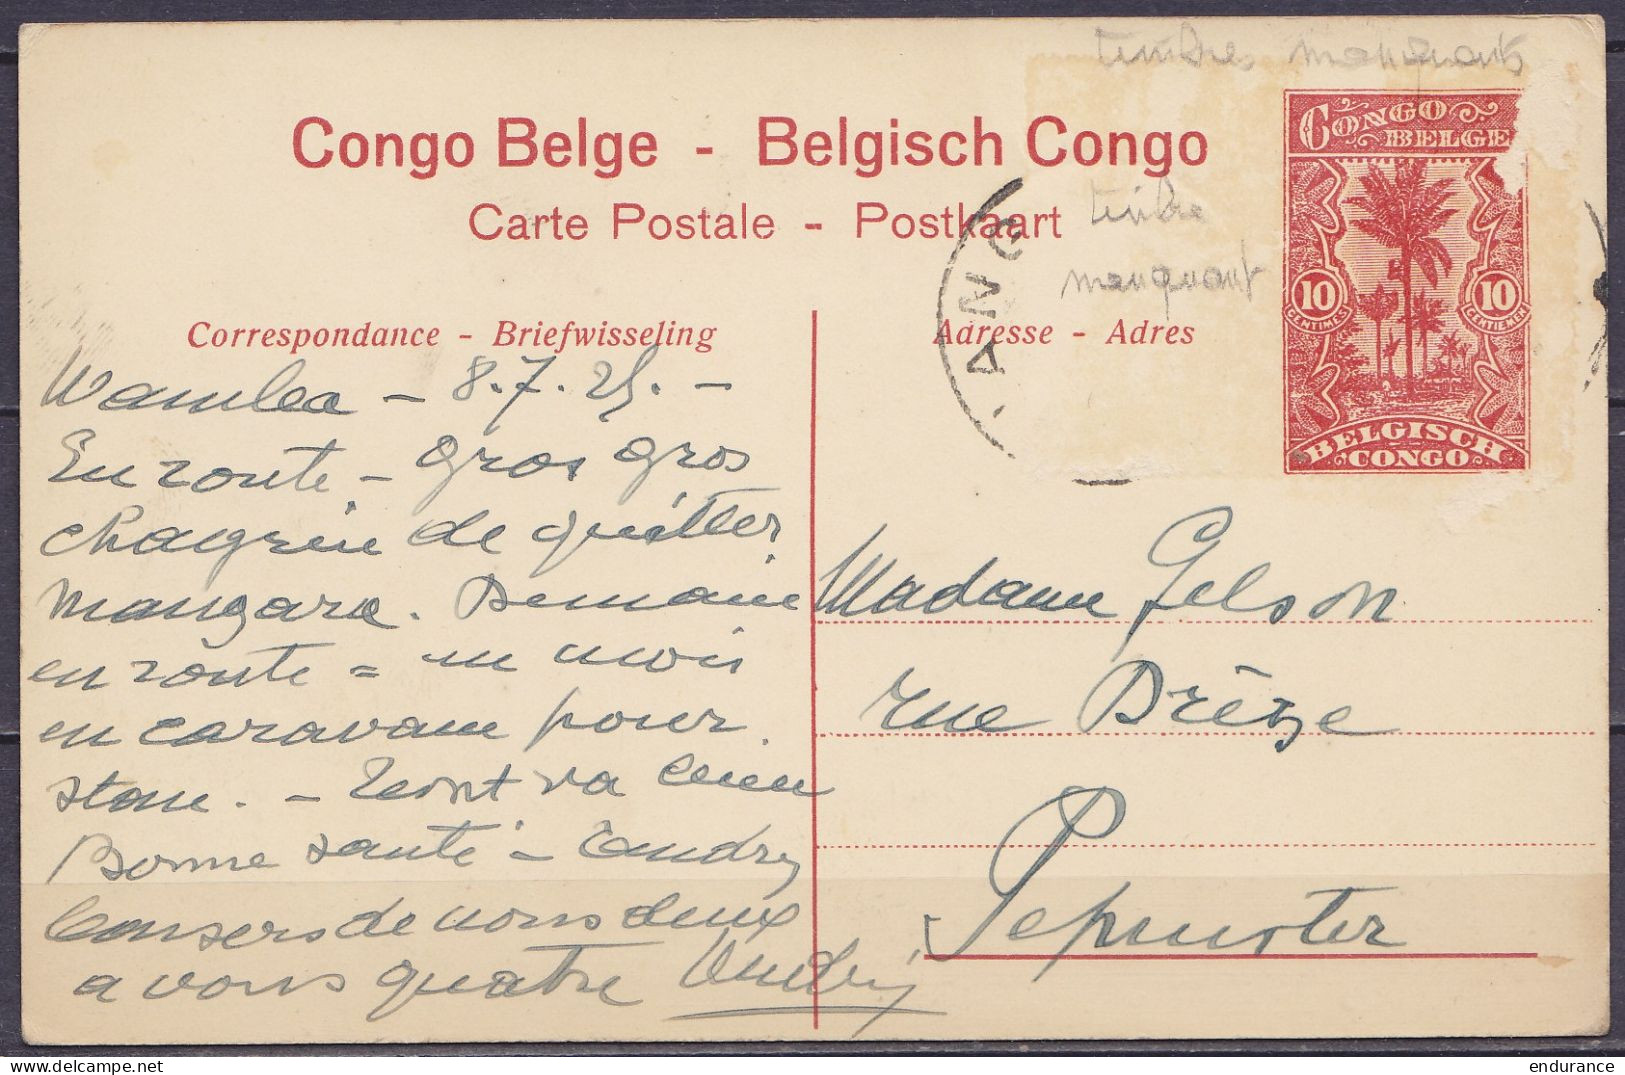 timbres manquants
Congo Belge - Belgisch Congo
Carte Postale - Postkaart
timbre
manquant
CONGO
BELGE
10
CENTIMES
10
CENTIEMEN
BELGISCH
CONGO
ANG
Correspondance - Briefwisseling
Wamba - 8.7.25. -
En route - gros gros
chagrin de quitter
Mangara. Demain
en route = un mois
en caravane pour
Stan. - Tout va bien
Bonne santé -
de nous deux
a vous quatre
Adresse - Adres
Madame Gelson
rue Drèze
Pepinster
delcampe.net
endurance